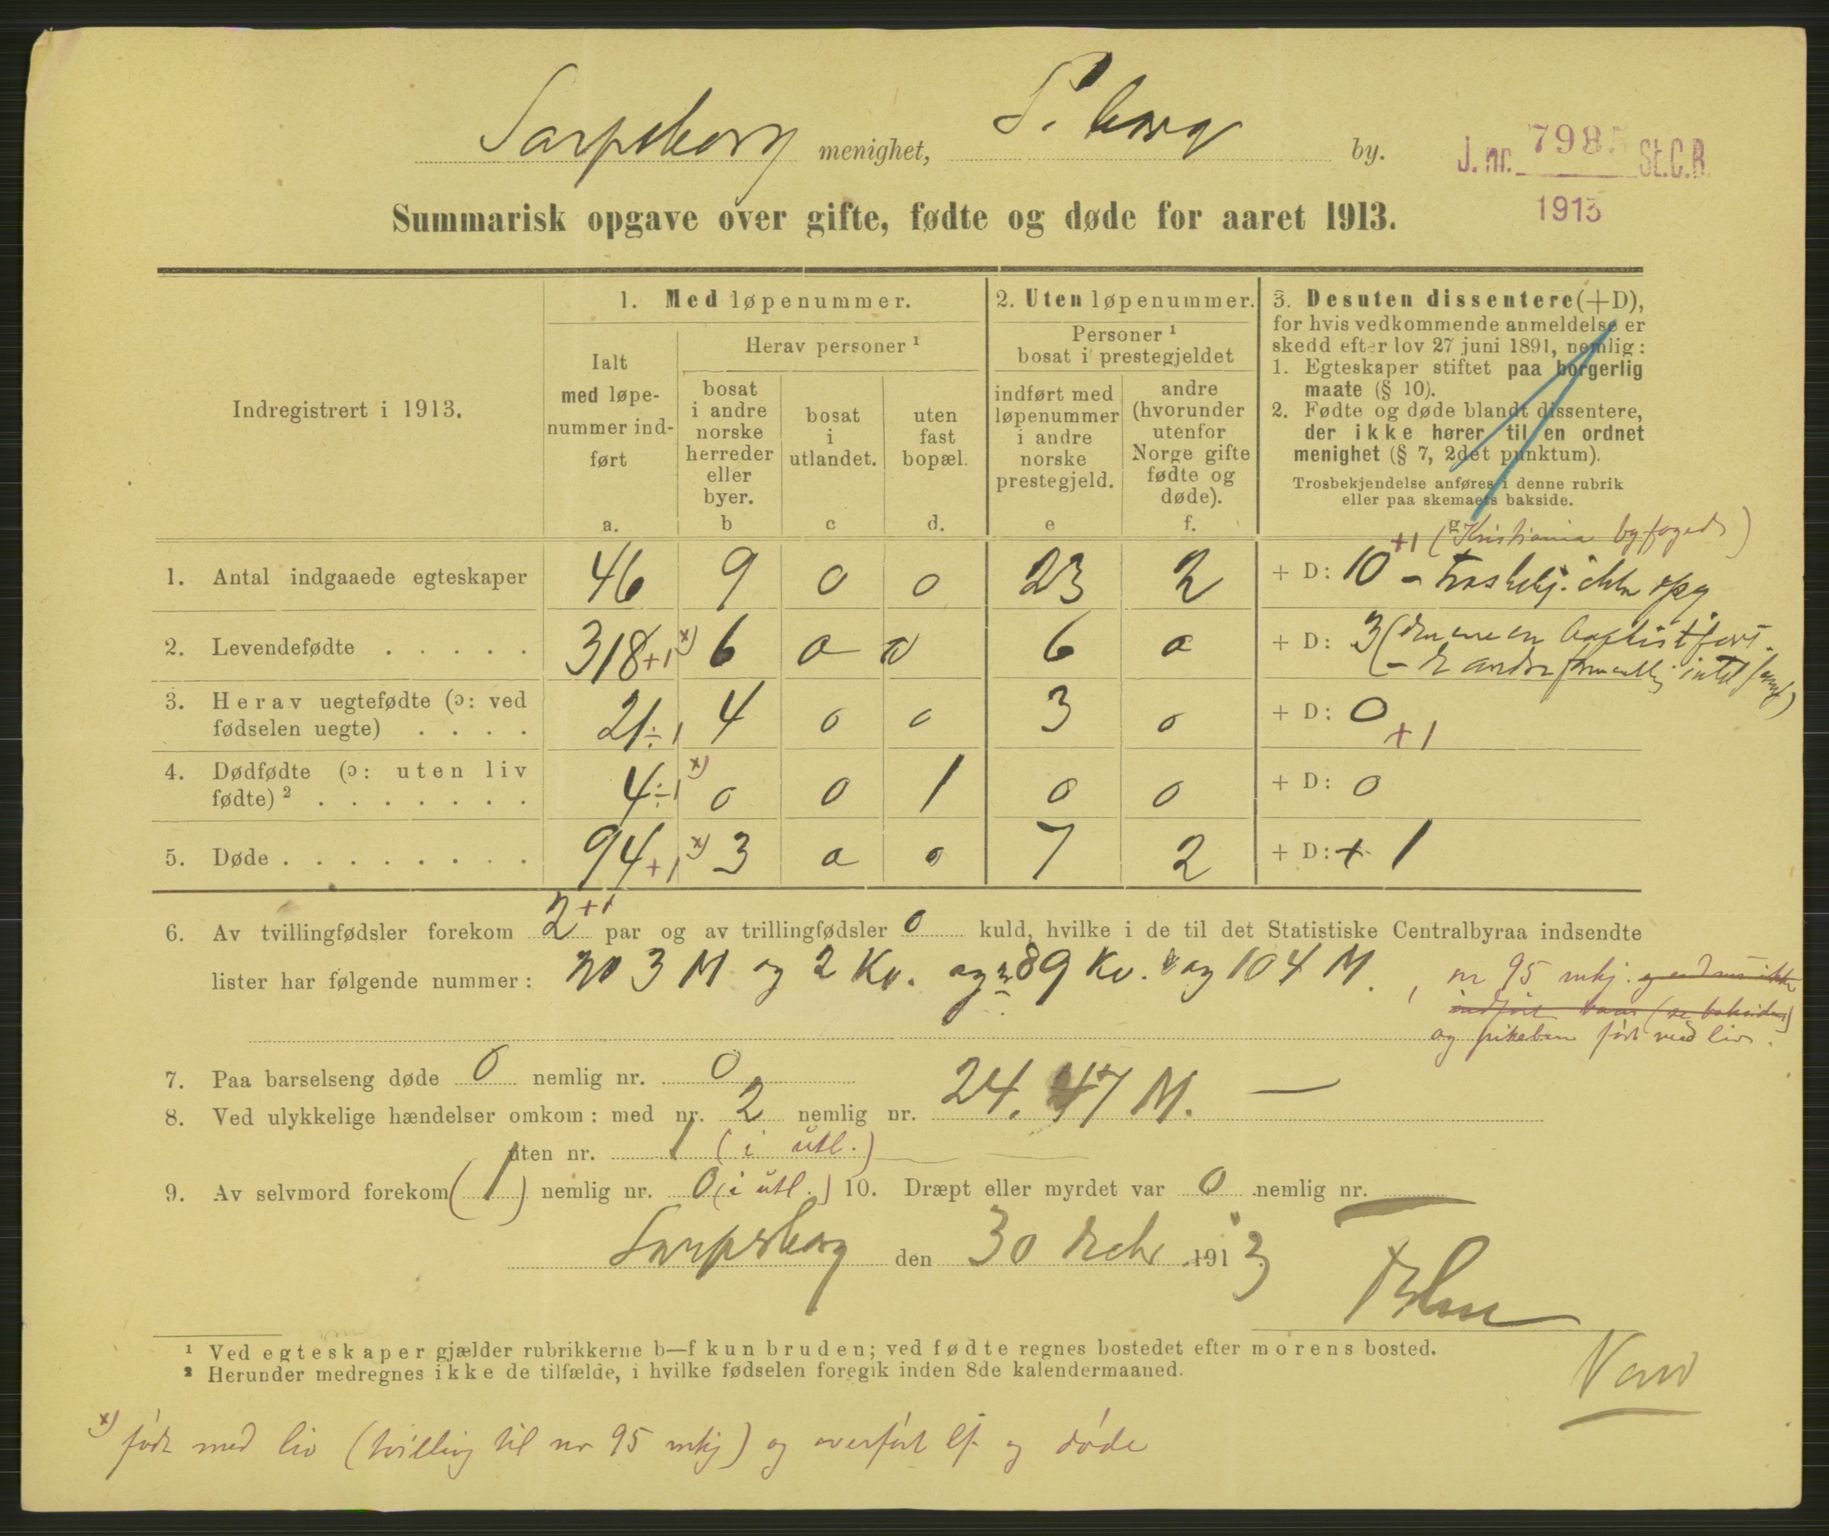 Sarpsborg menighet, S.borg by.
J. nr. 7985 St.C.B.
1913
Summarisk opgave over gifte, fødte og døde for aaret 1913.
Indregistrert i 1913.
1. Med løpenummer.
Ialt
med løpe-
nummer ind-
ført
a.
Herav personer ¹
bosat
i andre
norske
herreder
eller
byer.
b
bosat
i
utlandet.
c
uten
fast
bopæl.
d.
2. Uten løpenummer.
Personer ¹
bosat i prestegjeldet
indført med
løpenummer
i andre
norske
prestegjeld.
e
andre
(hvorunder
utenfor
Norge gifte
fødte og
døde).
f.
3. Desuten dissentere (+D),
for hvis vedkommende anmeldelse er
skedd efter lov 27 juni 1891, nemlig:
1. Egteskaper stiftet paa borgerlig
maate (§ 10).
2. Fødte og døde blandt dissentere,
der ikke hører til en ordnet
menighet (§ 7, 2det punktum).
Trosbekjendelse anføres i denne rubrik
eller paa skemaets bakside.
g
+1 (Kristiania byfoged)
1. Antal indgaaede egteskaper 46 9 0 0 23 2 + D: 10 – Trosbekj. ikke opg
2. Levendefødte . . . . . 318+1 x) 6 0 0 6 0 + D: 3 (
3. Herav uegtefødte (ɔ: ved
fødselen uegte) . . . . 21÷1 4 0 0 3 0 + D: 0
+1
4. Dødfødte (ɔ: uten liv
fødte) ² . . . . . . . 4÷1 x) 0 0 1 0 0 + D: 0
5. Døde . . . . . . . . 94+1 x) 3 0 0 7 2 + D: + 1
6. Av tvillingfødsler forekom 2+1 par og av trillingfødsler 0 kuld, hvilke i de til det Statistiske Centralbyraa indsendte
lister har følgende nummer: no 3 M og 2 Kv. og 89 Kv. og 104 M. , nr 95 mkj.
og pikebarn født med liv.
7. Paa barselseng døde 0 nemlig nr. 0
8. Ved ulykkelige hændelser omkom: med nr. 2 nemlig nr. 24. 47 M. —
uten nr. 1 (i utl.)
9. Av selvmord forekom (1) nemlig nr. 0 (i utl.) 10. Dræpt eller myrdet var 0 nemlig nr.
Sarpsborg den 30 Decbr 1913
¹ Ved egteskaper gjælder rubrikkerne b—f kun bruden; ved fødte regnes bostedet efter morens bosted.
² Herunder medregnes ikke de tilfælde, i hvilke fødselen foregik inden 8de kalendermaaned.
x) født med liv (tvilling til nr 95 mkj) og overført lf. og døde